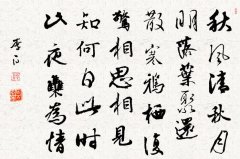 秋風清秋月
明落葉聚還
散寒鴉栖復
驚相思相見
知何日此時
此夜難為情